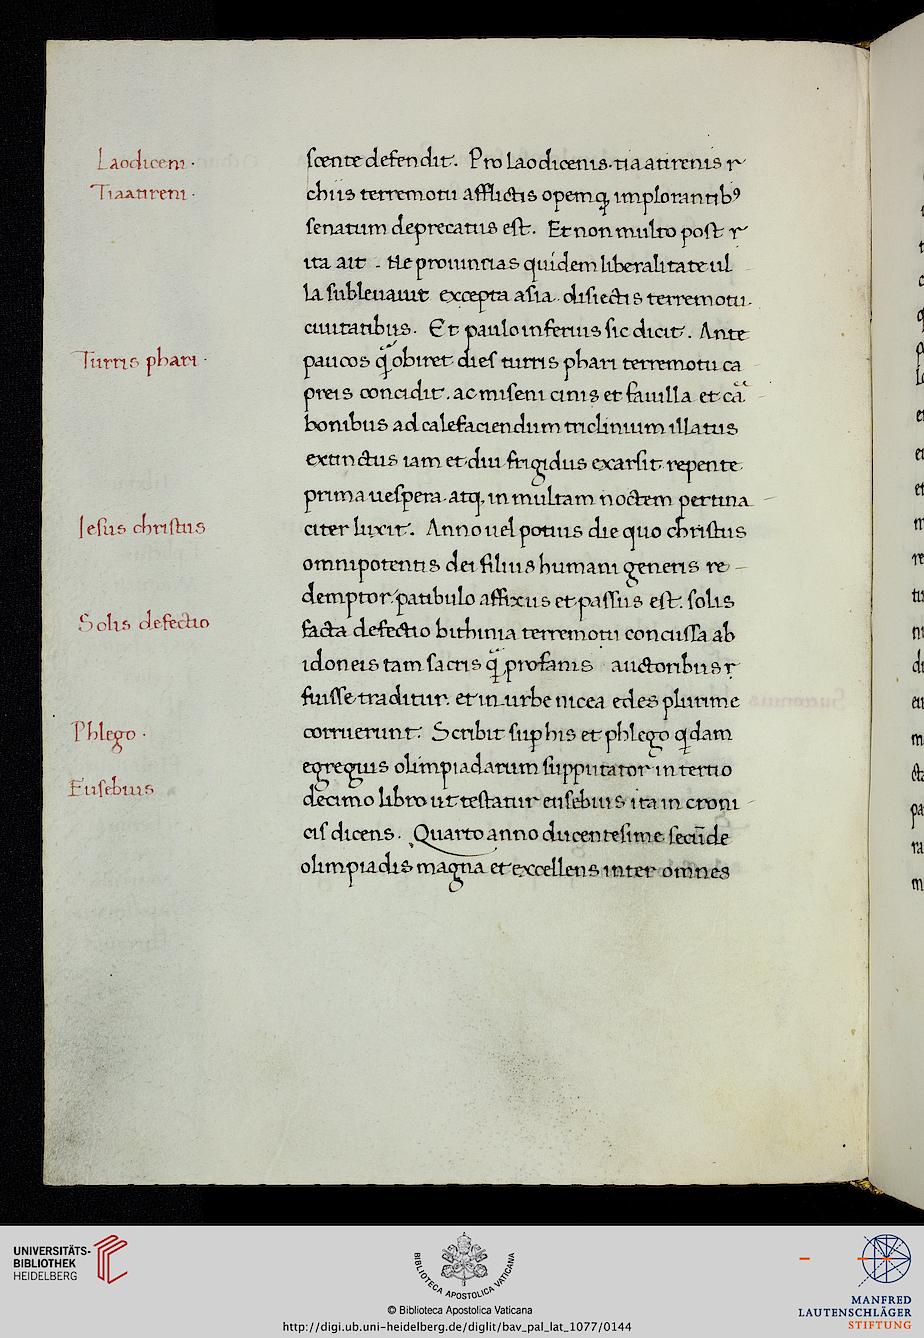 Laodiceni ·
Tiaatireni ·
Turris phari ·
Iesus christus
Solis defectio
Phlego ·
Eusebius
scente defendit. Pro laodicenis. tiaatirenis r
chiis terremotu afflictis opemq; implorantibꝰ
senatum deprecatus est. Et non multo post r
ita ait . Ne prouintias quidem liberalitate ul
la subleuauit excepta asia. disiectis terremotu.
ciuitatibus. Et paulo inferius sic dicit. Ante
paucos qᷓ obiret dies turris phari terremotu ca
preis concidit. ac miseni cinis et fauilla et caᷓ
bonibus ad calefaciendum triclinium illatus
extinctus iam et diu frigidus exarsit repente
prima uespera. atq; in multam noctem pertina
citer luxit. Anno uel potius die quo christus
omnipotentis dei filius humani generis re –
demptor patibulo affixus et passus est. solis
facta defectio bithinia terremotu concussa ab
idoneis tam sacris qᷓ profanis auctoribus r
fuisse traditur. et in urbe nicea edes plurime
corruerunt. Scribit sup his et phlego qdam
egregius olimpiadarum supputator in tertio
decimo libro ut testatur eusebius ita in croni
cis dicens. Quarto anno ducentesime secūde
olimpiadis magna et excellens inter omnes
UNIVERSITÄTS-
BIBLIOTHEK
HEIDELBERG
BIBLIOTECA APOSTOLICA VATICANA
© Biblioteca Apostolica Vaticana
http://digi.ub.uni-heidelberg.de/diglit/bav_pal_lat_1077/0144
MANFRED
LAUTENSCHLÄGER
STIFTUNG